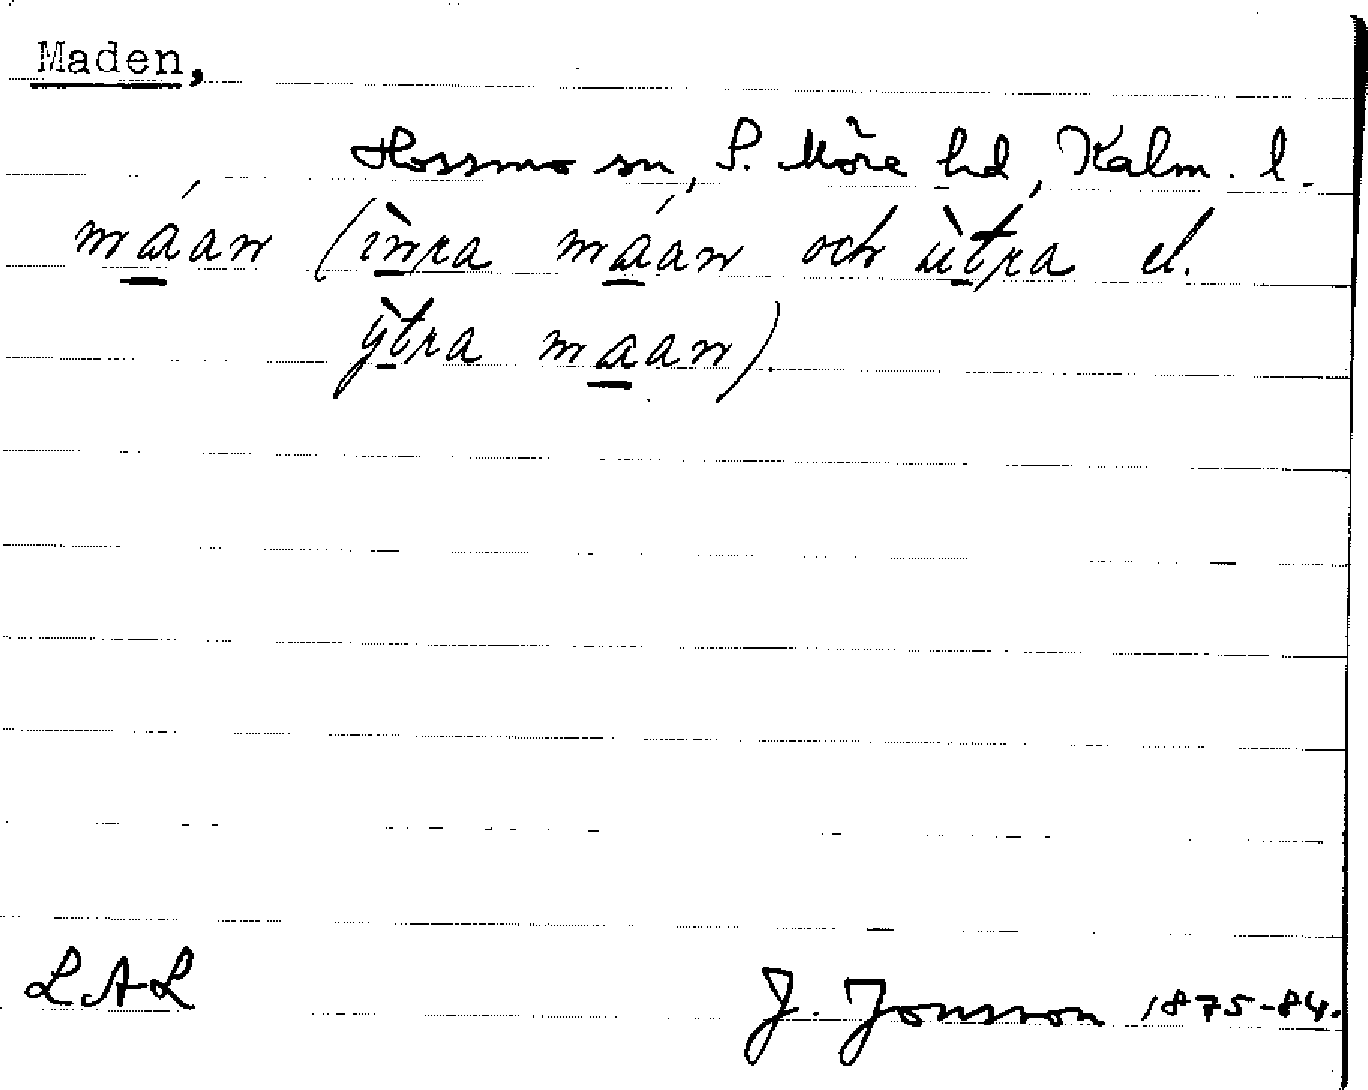 Maden,
Hossmo sn, S. Möre hd, Kalm. l.
máan (ìnra máan och ùtra el.
ỳtra maan).
LAL
J. Jonsson 1875-84.